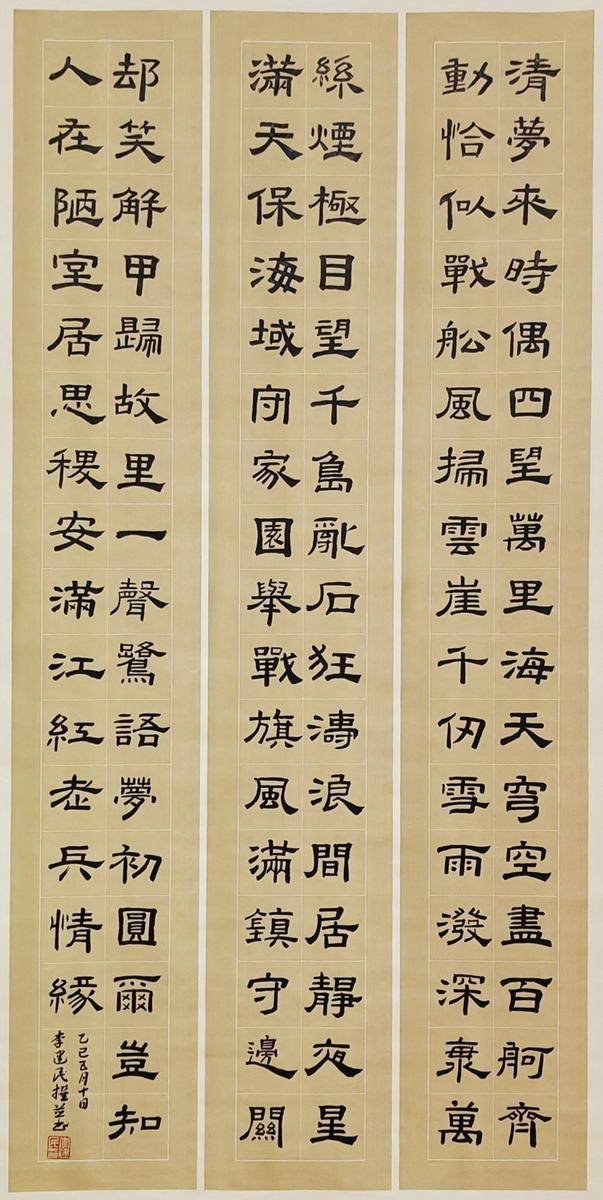 清夢來時偶四望萬里海天穹空盡百舸齊
動恰似戰船風掃雲崖千仞雪雨潑深衷萬
絲煙極目望千島亂石狂濤浪間居靜夜星
滿天保海域守家園舉戰旗風滿鎮守邊關
却笑解甲歸故里一聲鷺語夢初圓爾豈知
人在陋室居思稷安滿江紅老兵情緣
乙巳五月十日
李建民撰并书